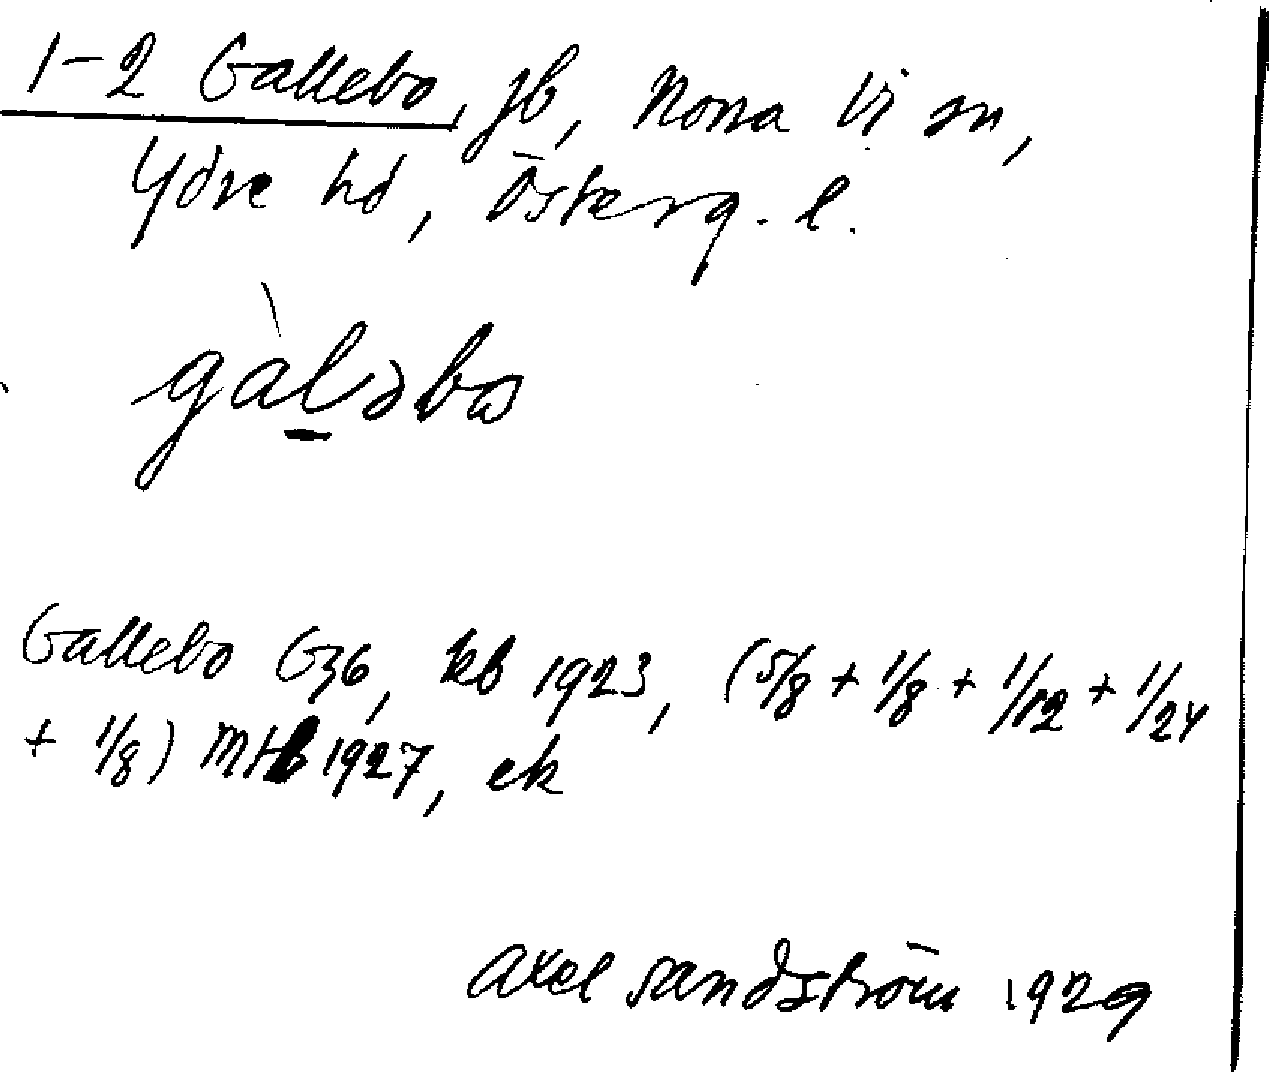 1-2 Gallebo, jb, Norra Vi sn,
Ydre hd, Österg. l.
gàl̲əbo
Gallebo G36, kb 1923, (5/8 + 1/8 + 1/12 + 1/24
+ 1/8) MHb 1927, ek
Axel Sandström 1929